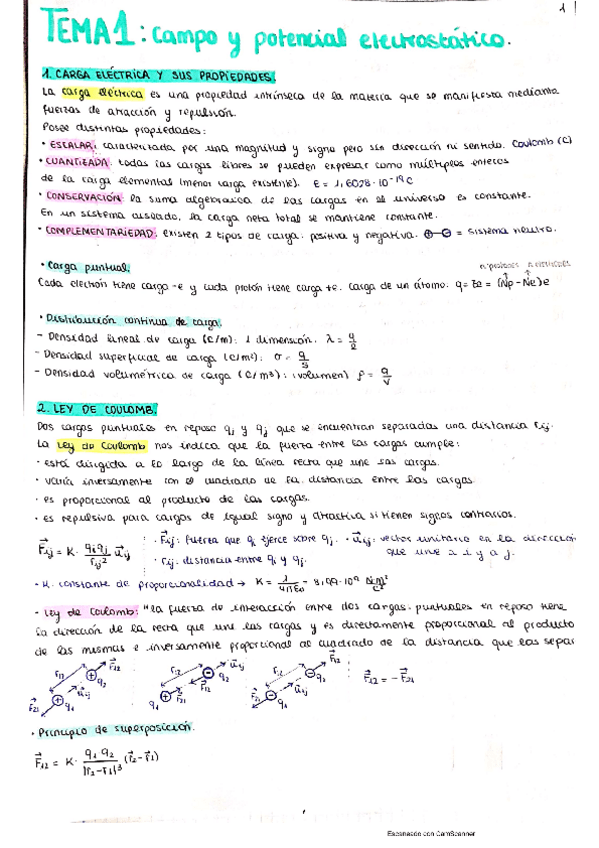 1
TEMA 1: campo y potencial electrostático.
1. CARGA ELÉCTRICA Y SUS PROPIEDADES.
La carga eléctrica es una propiedad intrínseca de la materia que se manifiesta mediante
fuerzas de atracción y repulsión.
Posee distintas propiedades:
• ESCALAR: caracterizada por una magnitud y signo pero sin dirección ni sentido. Coulomb (C)
• CUANTIZADA: todas las cargas libres se pueden expresar como múltiplos enteros
de la carga elemental (menor carga existente). E = 1,6028·10⁻¹⁹C
• CONSERVACIÓN: la suma algebraica de las cargas en el universo es constante.
En un sistema aislado, la carga neta total se mantiene constante.
• COMPLEMENTARIEDAD: existen 2 tipos de carga: positiva y negativa. ⊕–⊖ = sistema neutro.
• Carga puntual.
nº protones nº electrones
Cada electrón tiene carga -e y cada protón tiene carga +e. Carga de un átomo: q = Ze = (Np - Ne)e
• Distribución continua de carga.
- Densidad lineal de carga (C/m): 1 dimensión. λ = q/ℓ
- Densidad superficial de carga (C/m²): σ = q/S
- Densidad volumétrica de carga (C/m³): (volumen) ρ = q/V
2. LEY DE COULOMB.
Dos cargas puntuales en reposo qi y qj que se encuentran separadas una distancia rij.
La Ley de Coulomb nos indica que la fuerza entre las cargas cumple:
• está dirigida a lo largo de la línea recta que une las cargas.
• varía inversamente con el cuadrado de la distancia entre las cargas.
• es proporcional al producto de las cargas.
• es repulsiva para cargas de igual signo y atractiva si tienen signos contrarios.
F⃗ij = K · qi qj / rij² u⃗ij
• F⃗ij: fuerza que qi ejerce sobre qj. • u⃗ij: vector unitario en la dirección
que une i y a j.
• rij: distancia entre qi y qj.
• K: constante de proporcionalidad → K = 1/4πε₀ = 8,99·10⁹ N·m²/C²
• Ley de Coulomb: "la fuerza de interacción entre dos cargas puntuales en reposo tiene
la dirección de la recta que une las cargas y es directamente proporcional al producto
de las mismas e inversamente proporcional al cuadrado de la distancia que las separ
F⃗21 q1 r12 u⃗ij q2 F⃗12
q1 r12 F⃗12 q2
F⃗21 q1 r12 u⃗ij q2 F⃗12
F⃗12 = - F⃗21
• Principio de superposición.
F⃗12 = K · q1 q2 / |r2 - r1|³ (r⃗2 - r⃗1)
Escaneado con CamScanner